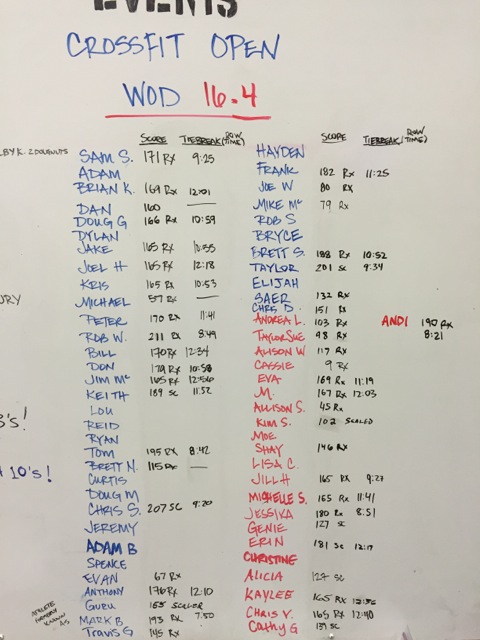 EVENTS
CROSSFIT OPEN
WOD 16.4
SCORE TIEBREAK (ROW TIME)
SAM S. 171 RX 9:25
ADAM
BRIAN K. 169 RX 12:01
DAN 160 —
DOUG G 166 RX 10:59
DYLAN
JAKE 165 RX 10:55
JOEL H 165 RX 12:18
KRIS 165 RX 10:53
MICHAEL 57 RX —
PETER 170 RX 11:41
ROB W. 211 RX 8:49
BILL 170 RX 12:34
DON 179 RX 10:58
JIM Mc 165 RX 12:56
KEITH 189 SC 11:52
LOU
REID
RYAN
TOM 195 RX 8:42
BRETT N. 115 RX —
CURTIS
DOUG M
CHRIS S. 207 SC 9:20
JEREMY
ADAM B
SPENCE
EVAN 67 RX
ANTHONY 176 RX 12:10
GURU 155 SCALED
MARK B 193 RX 7:50
TRAVIS G 145 RX
SCORE TIEBREAK (ROW TIME)
HAYDEN
FRANK 182 RX 11:25
JOE W 80 RX
MIKE Mc 79 RX
ROB S
BRYCE
BRETT S. 188 RX 10:52
TAYLOR 201 SC 9:34
ELIJAH
SAER 132 RX
CHRIS D. 151 RX
ANDREA L. 103 RX
TAYLOR SUE 98 RX
ALISON W 117 RX
CASSIE 9 RX
EVA 189 RX 11:19
M. 167 RX 12:03
ALLISON S. 45 RX
KIM S. 102 SCALED
MOE
SHAY 146 RX
LISA C.
JILL H 165 RX 9:27
MICHELLE S. 165 RX 11:41
JESSIKA 180 RX 8:51
GENIE 127 SC
ERIN 181 SC 12:17
CHRISTINE
ALICIA 127 SC
KAYLEE 165 RX 12:36
CHRIS V. 165 RX 12:40
CATHY G 139 SC
ANDI 190 RX
8:21
BY K. 2 DOUGNUTS
URY
'S!
10'S!
ATHLETE
FORMERLY
KNOWN
AS